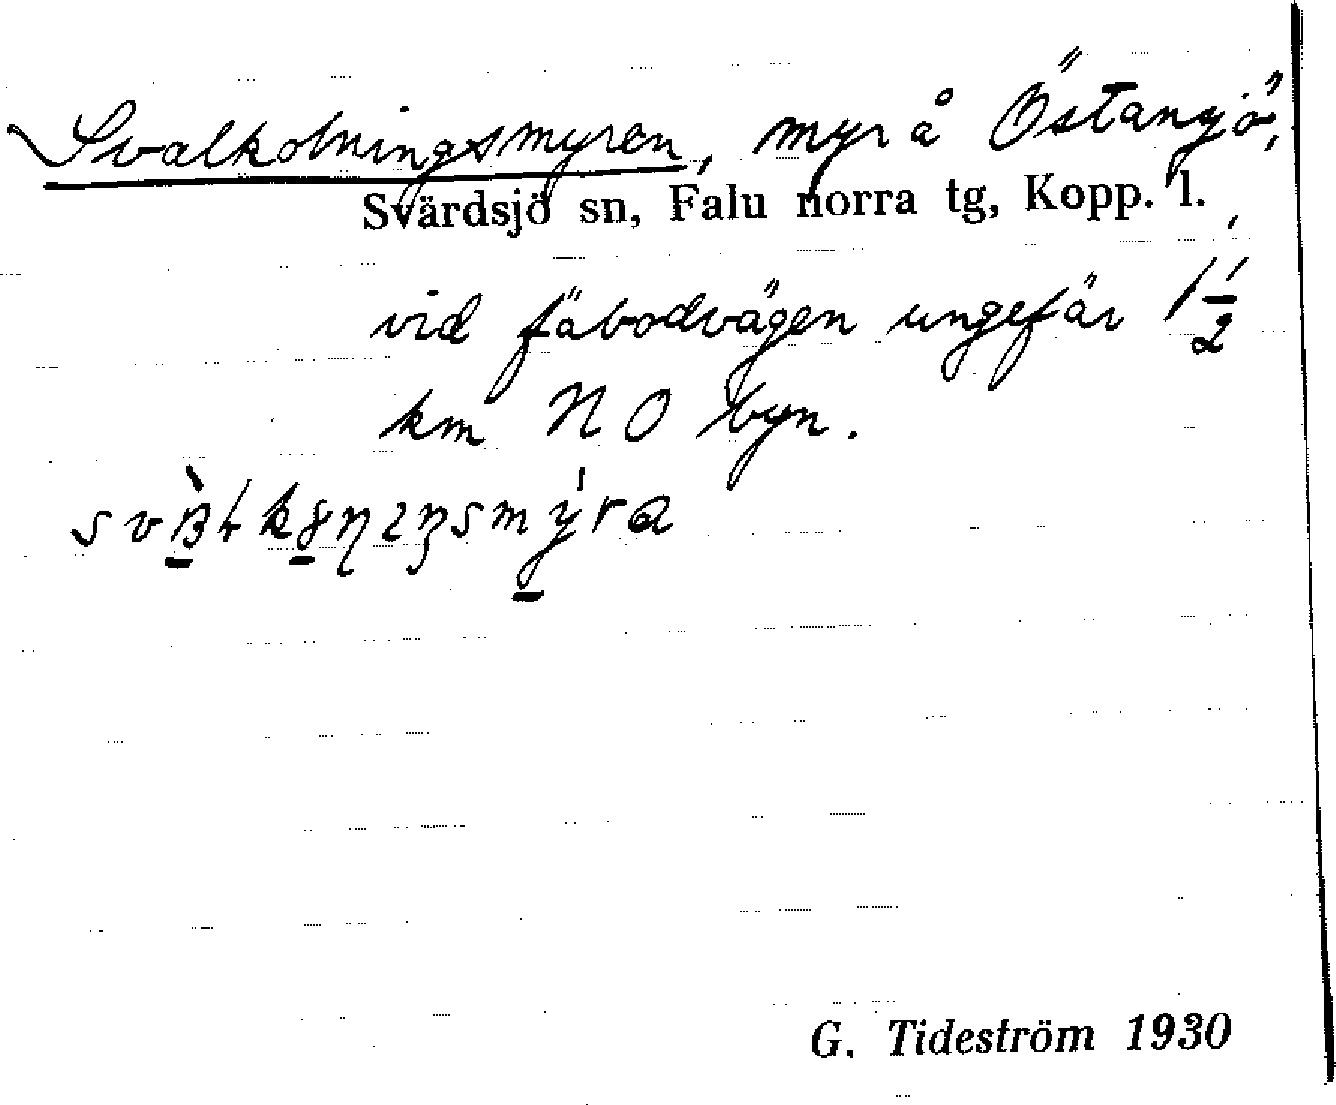 Svalkolningsmyren, myr å Östansjö,
Svärdsjö sn, Falu norra tg, Kopp. l.
vid fäbodvägen ungefär 1 1/2
km NO byn.
G. Tideström 1930